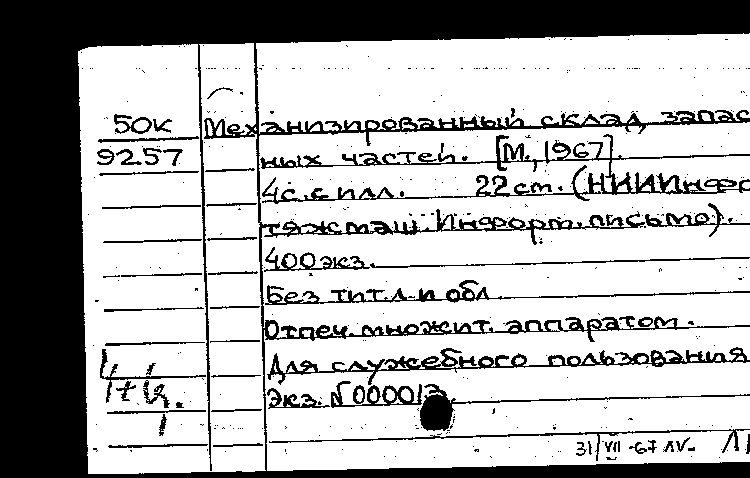 50К Механизированный склад запас
9257 ных частей. [М., 1967].
4с. с илл. 22 cm. (НИИИнфор
тяжмаш. Информ. письмо).
400 экз.
Без тит. л. и обл.
Отпеч. множит. аппаратом.
Для служебного пользования
Экз. № 000013.
31/VII-67